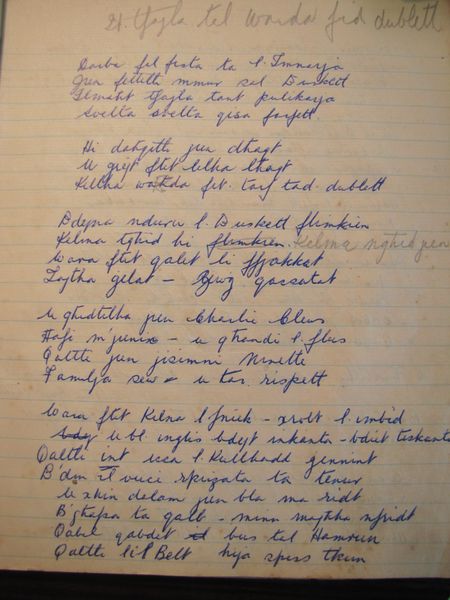 21. Tfajla tal warda fid dublett
Darba fil festa ta l. Imnarja
Jien filli mmur sal Buskett
Ilmaħt tfajla tant pulikarja
Svelta svelta qisa forfett
Hi daħqitli jien dħaqt
U ġejt ftit lilha lħaqt
Killha warda fit. tarf tad. dublett
Bdejna nduru l. Buskett flimkien
Kelma tgħid hi flimkien. Kelma ngħid jien
Wara ftit qalet li ffjakkat
Tajtha ġelat - Bewġ gassatat
U għidtilha jien Charlie Clews
Ħafi m'jiniex - u għandi l. flus
Qaltli jien jisimni Ninette
Familja sew u tas. rispett
Wara ftit Kilna l. fniek - xrobt l. imbid
U bl. inglis bdejt inkanta - bdiet tiskanta
Qaltli int issa l. Kullħadd ġennint
B'din il vuċi spizata ta tenur
U xħin dalam jien bla ma ridt
B'għafsa ta qalb - minn magħha nfridt
Qabel qabdet bus tal Hamrun
Qaltli lil Belt hija spiss tkun